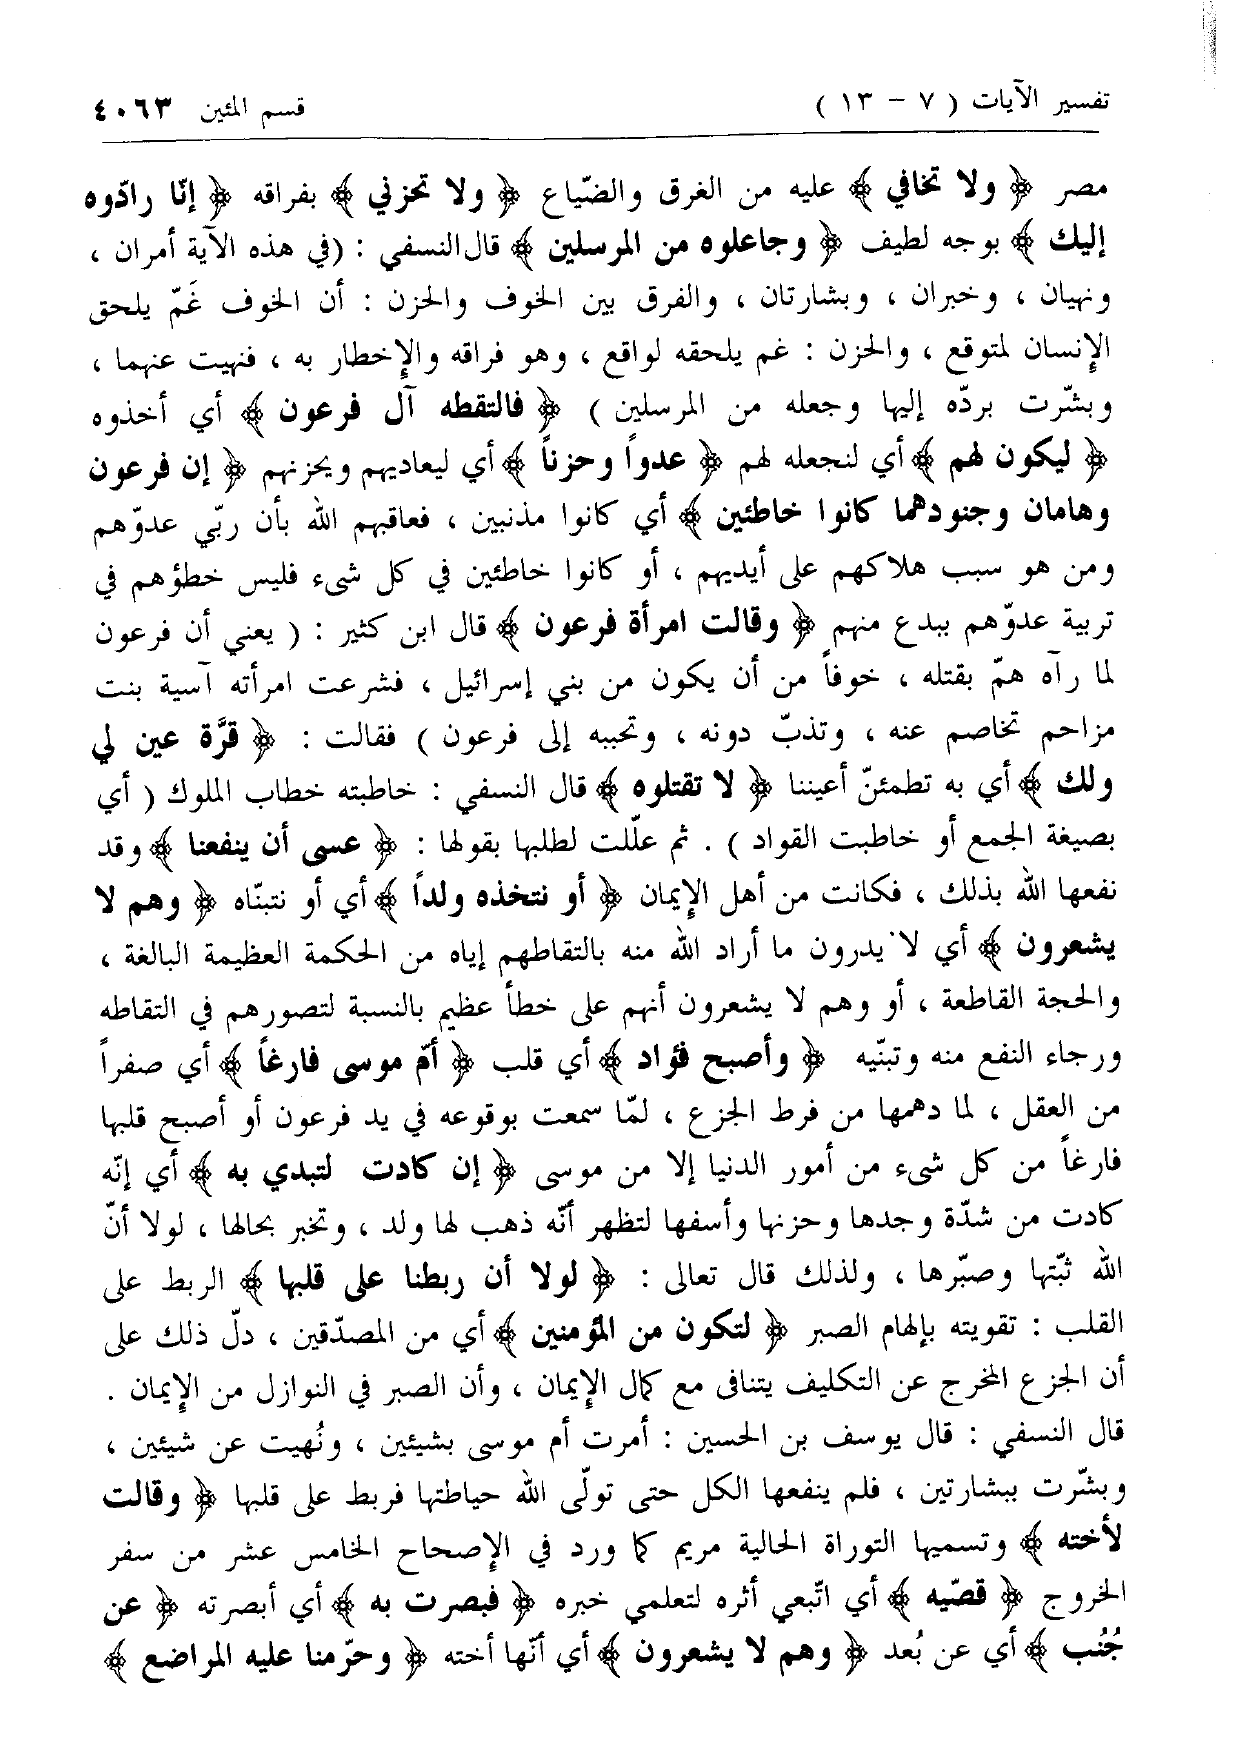 تفسير الآيات ( ٧ – ١٣ ) قسم المئين ٤٠٦٣
مصر ﴿ ولا تخافي ﴾ عليه من الغرق والضّياع ﴿ ولا تحزني ﴾ بفراقه ﴿ إنّا رادّوه
إليك ﴾ بوجه لطيف ﴿ وجاعلوه من المرسلين ﴾ قال النسفي : (في هذه الآية أمران ،
ونهيان ، وخبران ، وبشارتان ، والفرق بين الخوف والحزن : أن الخوف غَمّ يلحق
الإنسان لمتوقع ، والحزن : غم يلحقه لواقع ، وهو فراقه والإخطار به ، فنهيت عنهما ،
وبشّرت بردّه إليها وجعله من المرسلين ) ﴿ فالتقطه آل فرعون ﴾ أي أخذوه
﴿ ليكون لهم ﴾ أي لنجعله لهم ﴿ عدواً وحزناً ﴾ أي ليعاديهم ويحزنهم ﴿ إن فرعون
وهامان وجنودهما كانوا خاطئين ﴾ أي كانوا مذنبين ، فعاقبهم الله بأن ربّي عدوّهم
ومن هو سبب هلاكهم على أيديهم ، أو كانوا خاطئين في كل شىء فليس خطؤهم في
تربية عدوّهم ببدع منهم ﴿ وقالت امرأة فرعون ﴾ قال ابن كثير : ( يعني أن فرعون
لما رآه همّ بقتله ، خوفاً من أن يكون من بني إسرائيل ، فشرعت امرأته آسية بنت
مزاحم تخاصم عنه ، وتذبّ دونه ، وتحببه إلى فرعون ) فقالت : ﴿ قرَّة عين لي
ولك ﴾ أي به تطمئنّ أعيننا ﴿ لا تقتلوه ﴾ قال النسفي : خاطبته خطاب الملوك ( أي
بصيغة الجمع أو خاطبت القواد ) . ثم علّلت لطلبها بقولها : ﴿ عسى أن ينفعنا ﴾ وقد
نفعها الله بذلك ، فكانت من أهل الإيمان ﴿ أو نتخذه ولداً ﴾ أي أو نتبنّاه ﴿ وهم لا
يشعرون ﴾ أي لا يدرون ما أراد الله منه بالتقاطهم إياه من الحكمة العظيمة البالغة ،
والحجة القاطعة ، أو وهم لا يشعرون أنهم على خطأ عظيم بالنسبة لتصورهم في التقاطه
ورجاء النفع منه وتبنّيه ﴿ وأصبح فؤاد ﴾ أي قلب ﴿ أمّ موسى فارغاً ﴾ أي صفراً
من العقل ، لما دهمها من فرط الجزع ، لمّا سمعت بوقوعه في يد فرعون أو أصبح قلبها
فارغاً من كل شىء من أمور الدنيا إلا من موسى ﴿ إن كادت لتبدي به ﴾ أي إنّه
كادت من شدّة وجدها وحزنها وأسفها لتظهر أنّه ذهب لها ولد ، وتخبر بحالها ، لولا أنّ
الله ثبّتها وصبّرها ، ولذلك قال تعالى : ﴿ لولا أن ربطنا على قلبها ﴾ الربط على
القلب : تقويته بإلهام الصبر ﴿ لتكون من المؤمنين ﴾ أي من المصدّقين ، دلّ ذلك على
أن الجزع المخرج عن التكليف يتنافى مع كمال الإيمان ، وأن الصبر في النوازل من الإيمان .
قال النسفي : قال يوسف بن الحسين : أمرت أم موسى بشيئين ، ونُهيت عن شيئين ،
وبشّرت ببشارتين ، فلم ينفعها الكل حتى تولّى الله حياطتها فربط على قلبها ﴿ وقالت
لأخته ﴾ وتسميها التوراة الحالية مريم كما ورد في الإصحاح الخامس عشر من سفر
الخروج ﴿ قصّيه ﴾ أي اتّبعي أثره لتعلمي خبره ﴿ فبصرت به ﴾ أي أبصرته ﴿ عن
جُنُب ﴾ أي عن بُعد ﴿ وهم لا يشعرون ﴾ أي أنّها أخته ﴿ وحرّمنا عليه المراضع ﴾